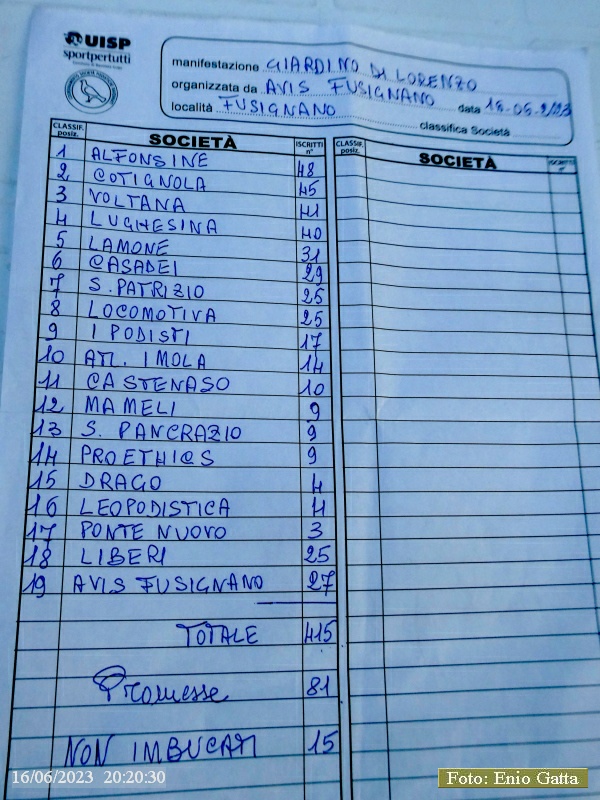 UISP
sportpertutti
manifestazione GIARDINO DI LORENZO
organizzata da AVIS FUSIGNANO data 16.06.2023
località FUSIGNANO
classifica Società
CLASSIF. posiz. SOCIETÀ ISCRITTI n° CLASSIF. posiz. SOCIETÀ ISCRITTI n°
1 ALFONSINE 48
2 COTIGNOLA 45
3 VOLTANA 41
4 LUGHESINA 40
5 LAMONE 31
6 CASADEI 29
7 S. PATRIZIO 25
8 LOCOMOTIVA 25
9 I PODISTI 17
10 ATL. IMOLA 14
11 CASTENASO 10
12 MAMELI 9
13 S. PANCRAZIO 9
14 PROETHICS 9
15 DRAGO 4
16 LEOPODISTICA 4
17 PONTE NUOVO 3
18 LIBERI 25
19 AVIS FUSIGNANO 27
TOTALE 415
Promesse 81
NON IMBUCATI 15
16/06/2023 20:20:30
Foto: Enio Gatta